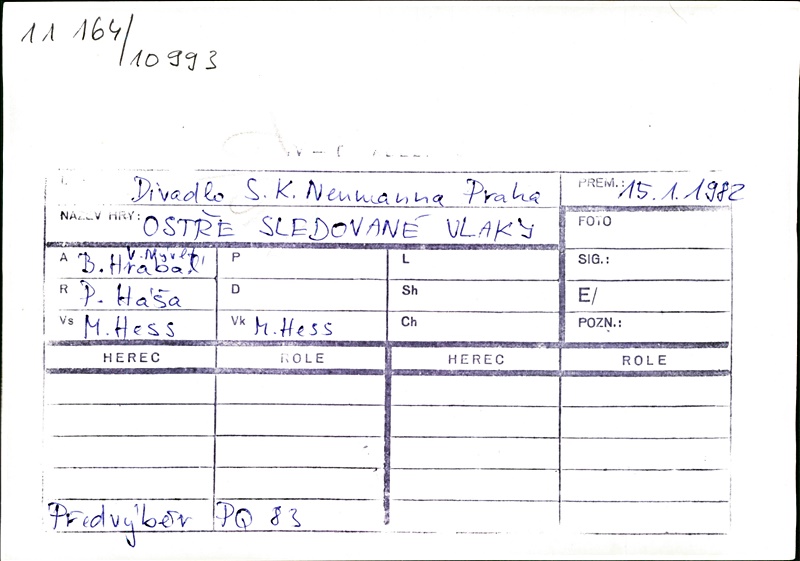 11 164/
10993
Divadlo S. K. Neumanna Praha
PREM.: 15.1.1982
NÁZEV HRY: OSTŘE SLEDOVANÉ VLAKY
FOTO
A B. Hrabal
P
L
SIG.:
R P. Háša
D
Sh
E/
Vs M. Hess
Vk M. Hess
Ch
POZN.:
HEREC ROLE HEREC ROLE
Předvýběr PQ 83